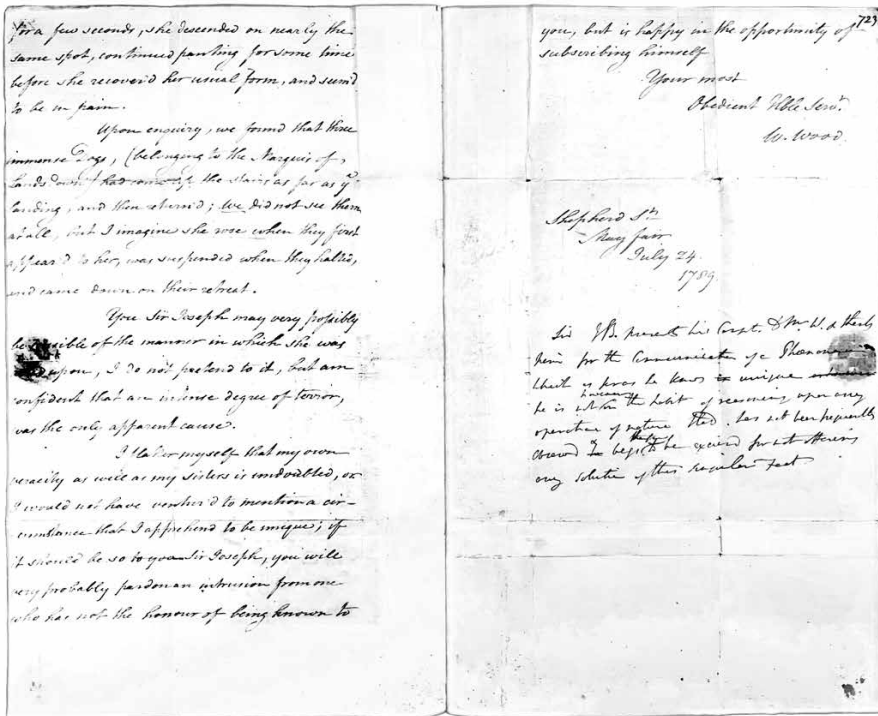 for a few seconds, she descended on nearly the
same spot, continued panting for some time
before she recover'd her usual form, and seem'd
to be in pain.
Upon enquiry, we found that three
immense Dogs, (belonging to the Marquis of
Landsdown) had come up the stairs as far as ye
landing, and then return'd; We did not see them
at all, but I imagine she rose when they first
appear'd to her, was suspended when they halted,
and came down on their retreat.
You Sir Joseph may very possibly
be sensible of the manner in which she was
upon, I do not pretend to it, but am
confident that an intense degree of terror,
was the only apparent cause.
I flatter myself that my own
veracity as well as my sisters is undoubted, or
I would not have ventur'd to mention a cir-
cumstance that I apprehend to be unique; if
it should be so to you Sir Joseph, you will
very probably pardon an intrusion from one
who has not the honour of being known to
723
you, but is happy in the opportunity of
subscribing himself
Your most
Obedient Hble Servt.
W. Wood.
Shepherd St
May fair
July 24
1789.
Sir JB. presents his Compts. to Mr W. & thanks
him for the Communication of a Phænomenon
which as far as he knows is unique
he is not however in the habit of reasoning upon any
operation of nature that has not been frequently
observed & begs to be excused for not offering
any solution of this singular fact